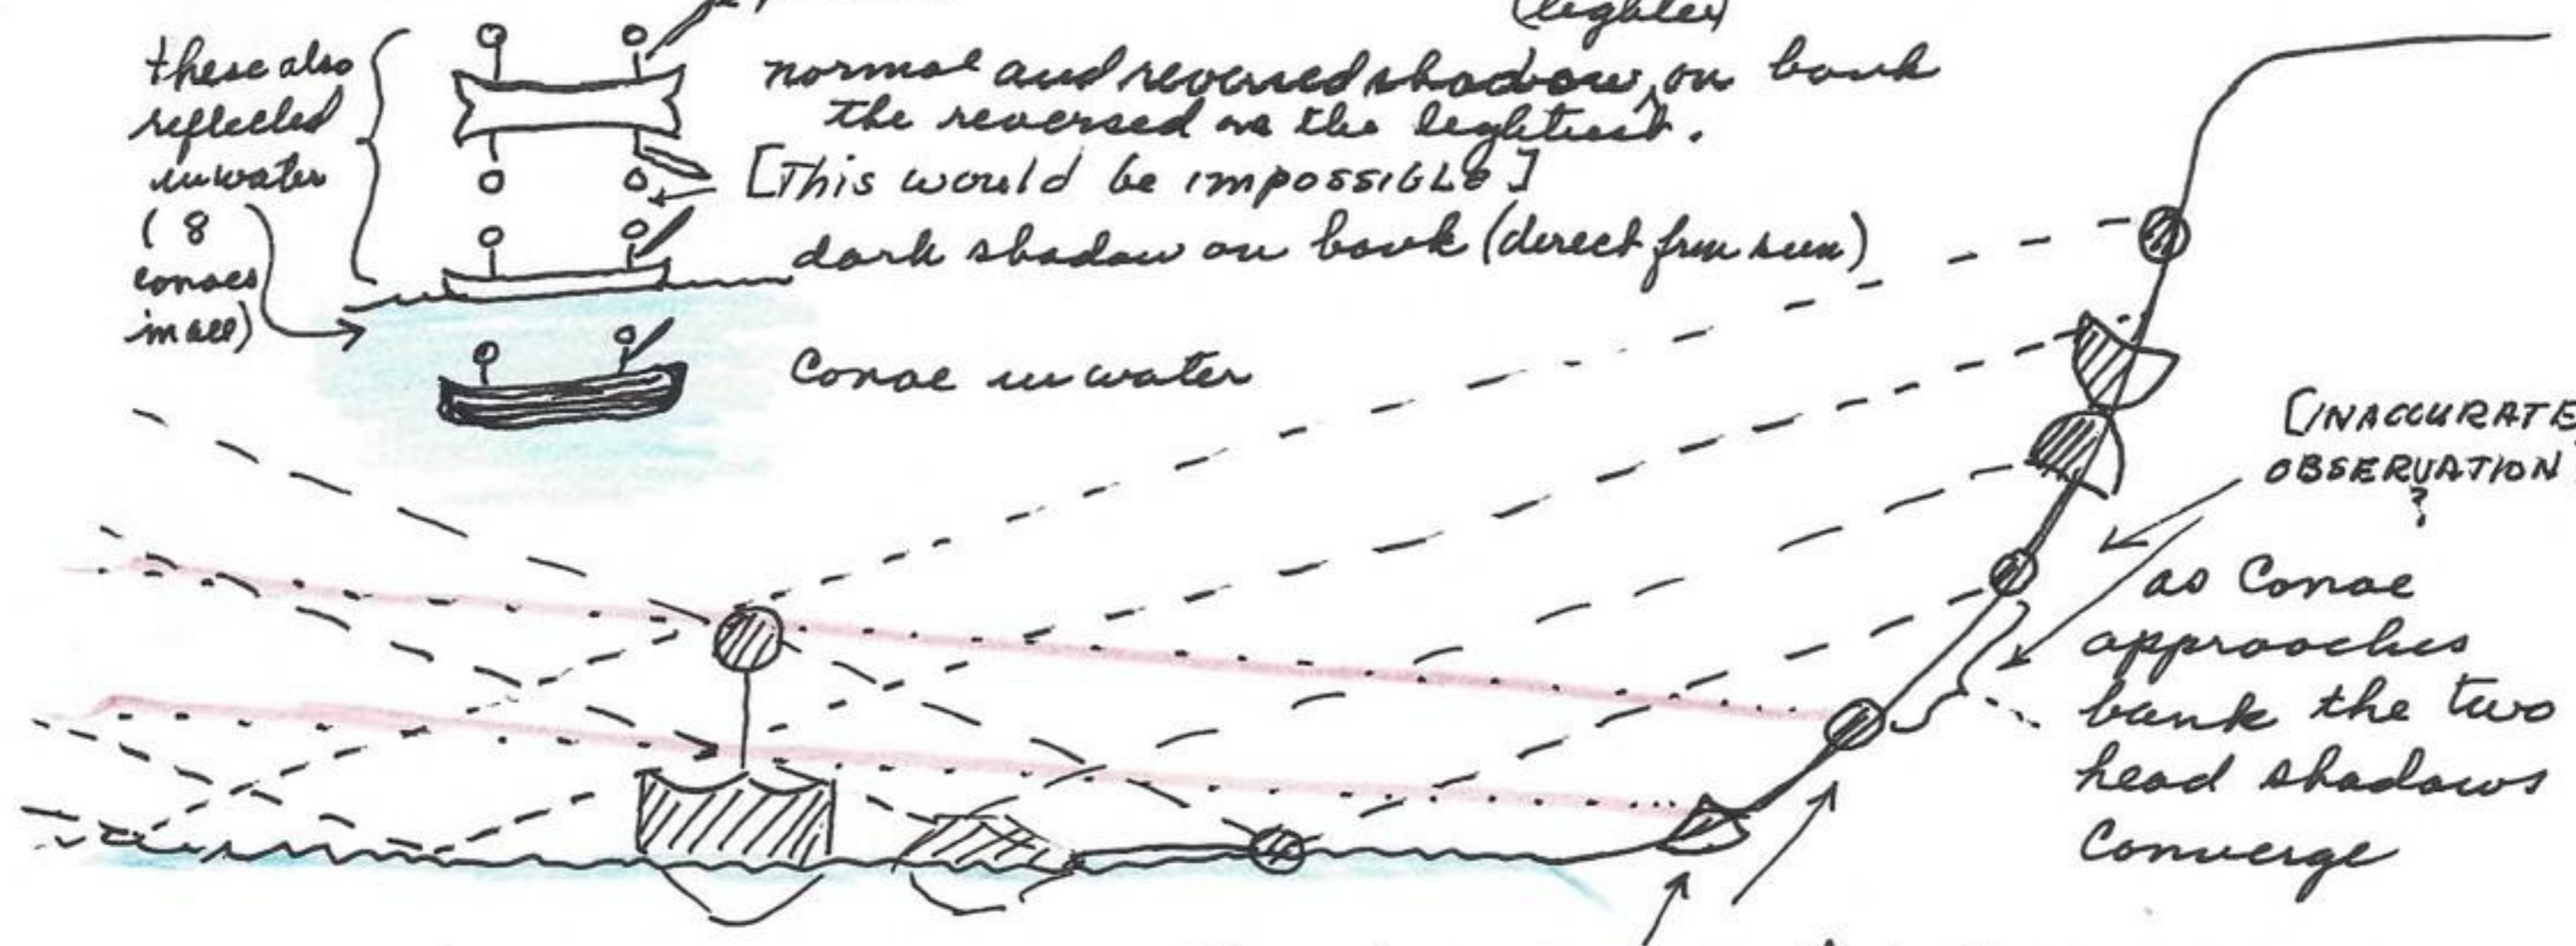 (lighter)
these also
reflected
in water
( 8
canoes
in all)
normal and reversed shadow ^ on bank
the reversed as the lightest.
[This would be impossible]
dark shadow on bank (direct from sun)
Canoe in water
[INACCURATE
OBSERVATION
?
as Canoe
approaches
bank the two
head shadows
Converge